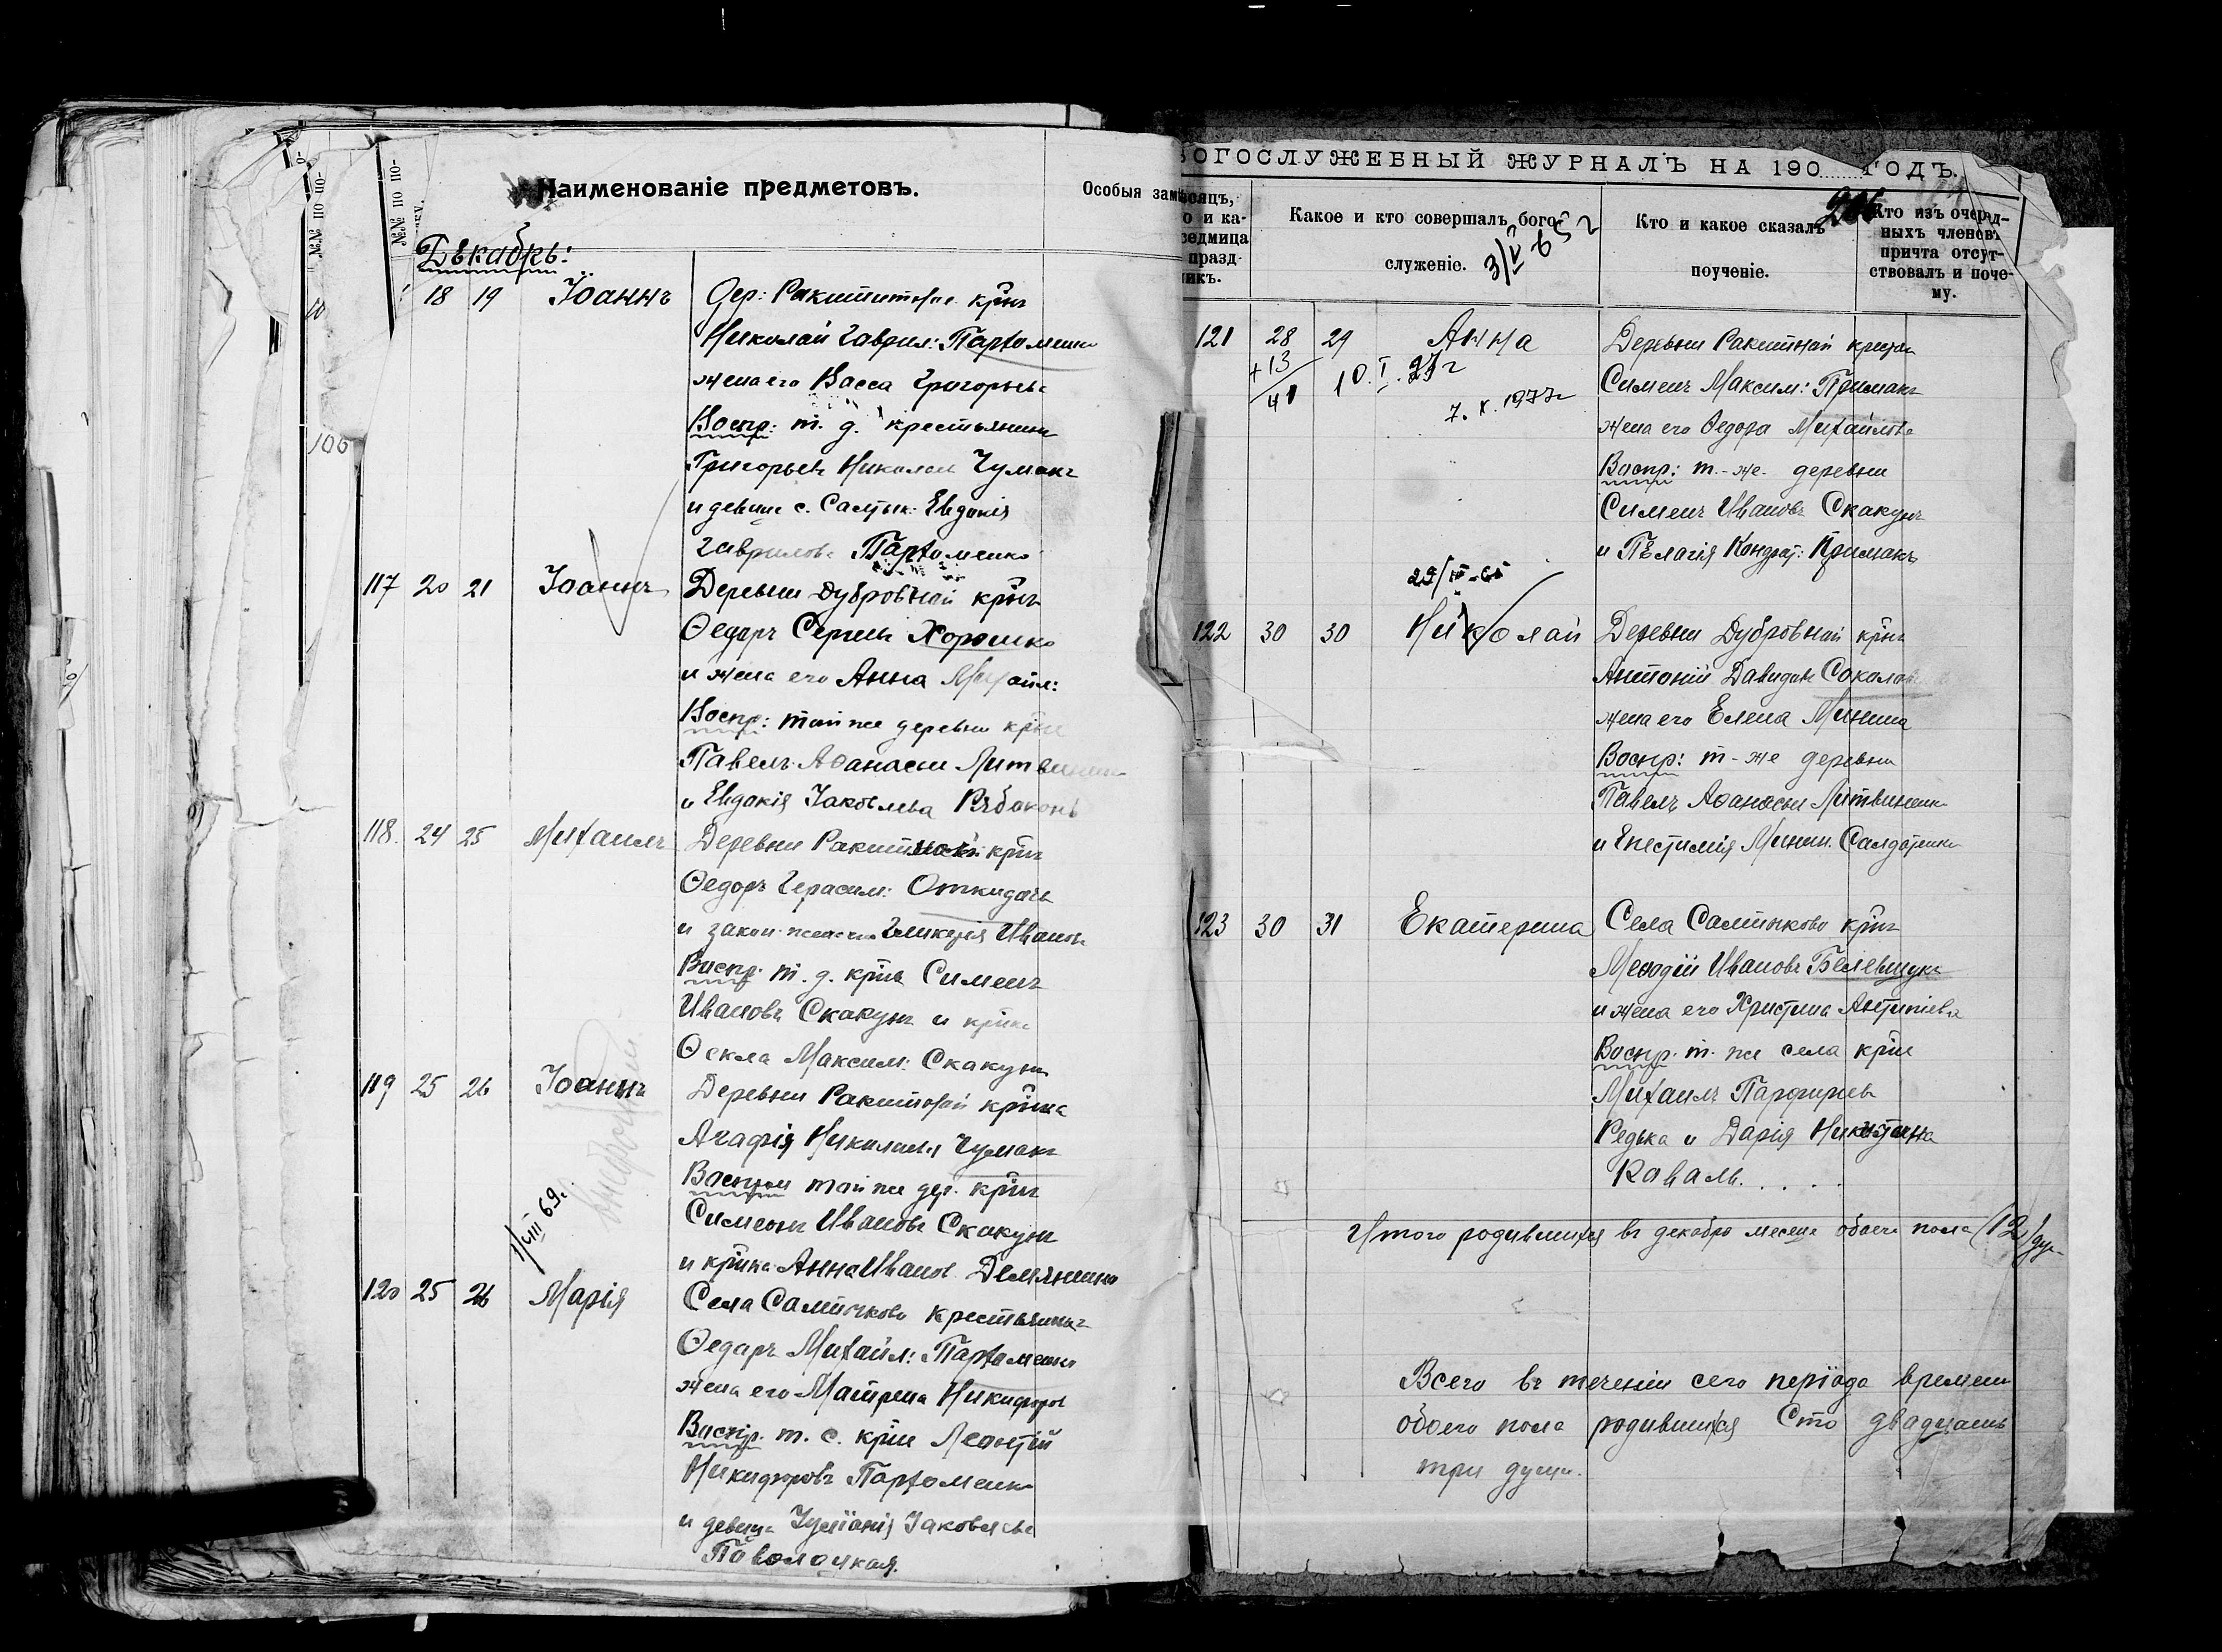 №№ по по-
№№ по по-
Наименованіе предметовъ.
Особыя
Декабрь:
18 19 Іоаннъ Дер: Ракитной крнъ
Николай Гаврил: Пархоменко
жена его Васса Григорьева
Воспр: т. д. крестьянинъ
Григорьевъ Николай Чумакъ
и девица с. Салтык: Евдокія
Гаврилова Пархоменко
117 20 21 Іоаннъ Деревни Дубровной крнъ
Ѳедоръ Сергіевъ Хорошко
и жена его Анна Михаил:
Воспр: той же деревни
Павелъ Аѳанасьи Литвиненко
и Евдокія Іаковлева Рябоконь
118. 24 25 Михаилъ Деревни Ракитной крнъ
Ѳедоръ Герасим: Откидачъ
и закон. жена его Гликерія Иванов
Воспр. т. д. крнъ Симеонъ
Ивановъ Скакунъ и
Ѳекла Максим: Скакунъ
119 25 26 Іоаннъ Деревни Ракитной крнка
Агафія Николаева Чумакъ
Воспр той же дер. крнъ
Симеонъ Ивановъ Скакунъ
и крнка Анна Иванов Демяненко
1/VIII 69г.
120 25 26 Марія Села Салтыкова крестьянинъ
Ѳедоръ Михайл: Пархоменко
жена его Матрена Никифоров
Воспр. т. с. крне Леонтій
Никифоровъ Пархоменко
и девица Іуліанія Іаковлева
Паволоцкая.
БОГОСЛУЖЕБНЫЙ ЖУРНАЛЪ НА 190 ГОДЪ.
Какое и кто совершалъ бого-
служеніе.
Кто и какое сказалъ
поученіе.
Кто изъ очеред-
ныхъ членовъ
причта отсут-
ствовалъ и поче-
му.
121 28 29 Анна Деревни Ракитной
+13
41
7. X. 1977г
Симеонъ Максим: Примакъ
жена его Ѳедора Михайлова
Воспр: т.-же. деревни
Симеонъ Ивановъ Скакунъ
и Пелагія Кондрат: Примакъ
122 30 30 Николай Деревни Дубровной крнъ
Антоній Давидовъ
жена его Елена Минина
Воспр: т-же деревни
Павелъ Аѳанасьи Литвиненко
и Епестимія Минин. Салдатенко
123 30 31 Екатерина Села Салтыкова крнъ
Меѳодій Ивановъ Белевщукъ
и жена его Христина Антипіева
Воспр. т. же села крне
Михаилъ Парфирьев
Редька и Дарія Никитина
Коваль. . . . .
Итого родившихся въ декабре месеце обоего пола (12) душ
Всего въ теченіи сего періода времени
обоего пола родившихся Сто двадцать
три души.